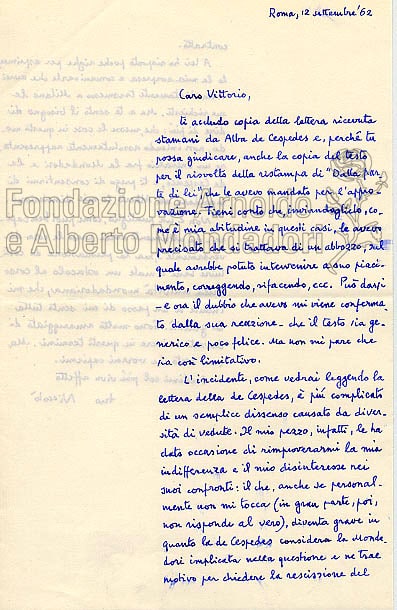 Roma, 12 settembre '62
Caro Vittorio,
ti accludo copia della lettera ricevuta
stamani da Alba de Cespedes e, perché tu
possa giudicare, anche la copia del testo
per il risvolto della ristampa di "Dalla par-
te di lei", che le avevo mandato per l'appro-
vazione. Tieni conto che, inviandoglielo, co-
me è mia abitudine in questi casi, le avevo
precisato che si trattava di un abbozzo, sul
quale avrebbe potuto intervenire a suo piaci-
mento, correggendo, rifacendo, ecc. Può darsi
– e ora il dubbio che avevo mi viene conferma-
to dalla sua reazione – che il testo sia ge-
nerico e poco felice. Ma non mi pare che
sia così limitativo.
L'incidente, come vedrai leggendo la
lettera della de Cespedes, è più complicato
di un semplice dissenso causato da diver-
sità di vedute. Il mio pezzo, infatti, le ha
dato occasione di rimproverarmi la mia
indifferenza e il mio disinteresse nei
suoi confronti: il che, anche se personal-
mente non mi tocca (in gran parte, poi,
non risponde al vero), diventa grave in
quanto la de Cespedes considera la Monda-
dori implicata nella questione e ne trae
motivo per chiedere la rescissione del
Fondazione Arnoldo
e Alberto Mondadori